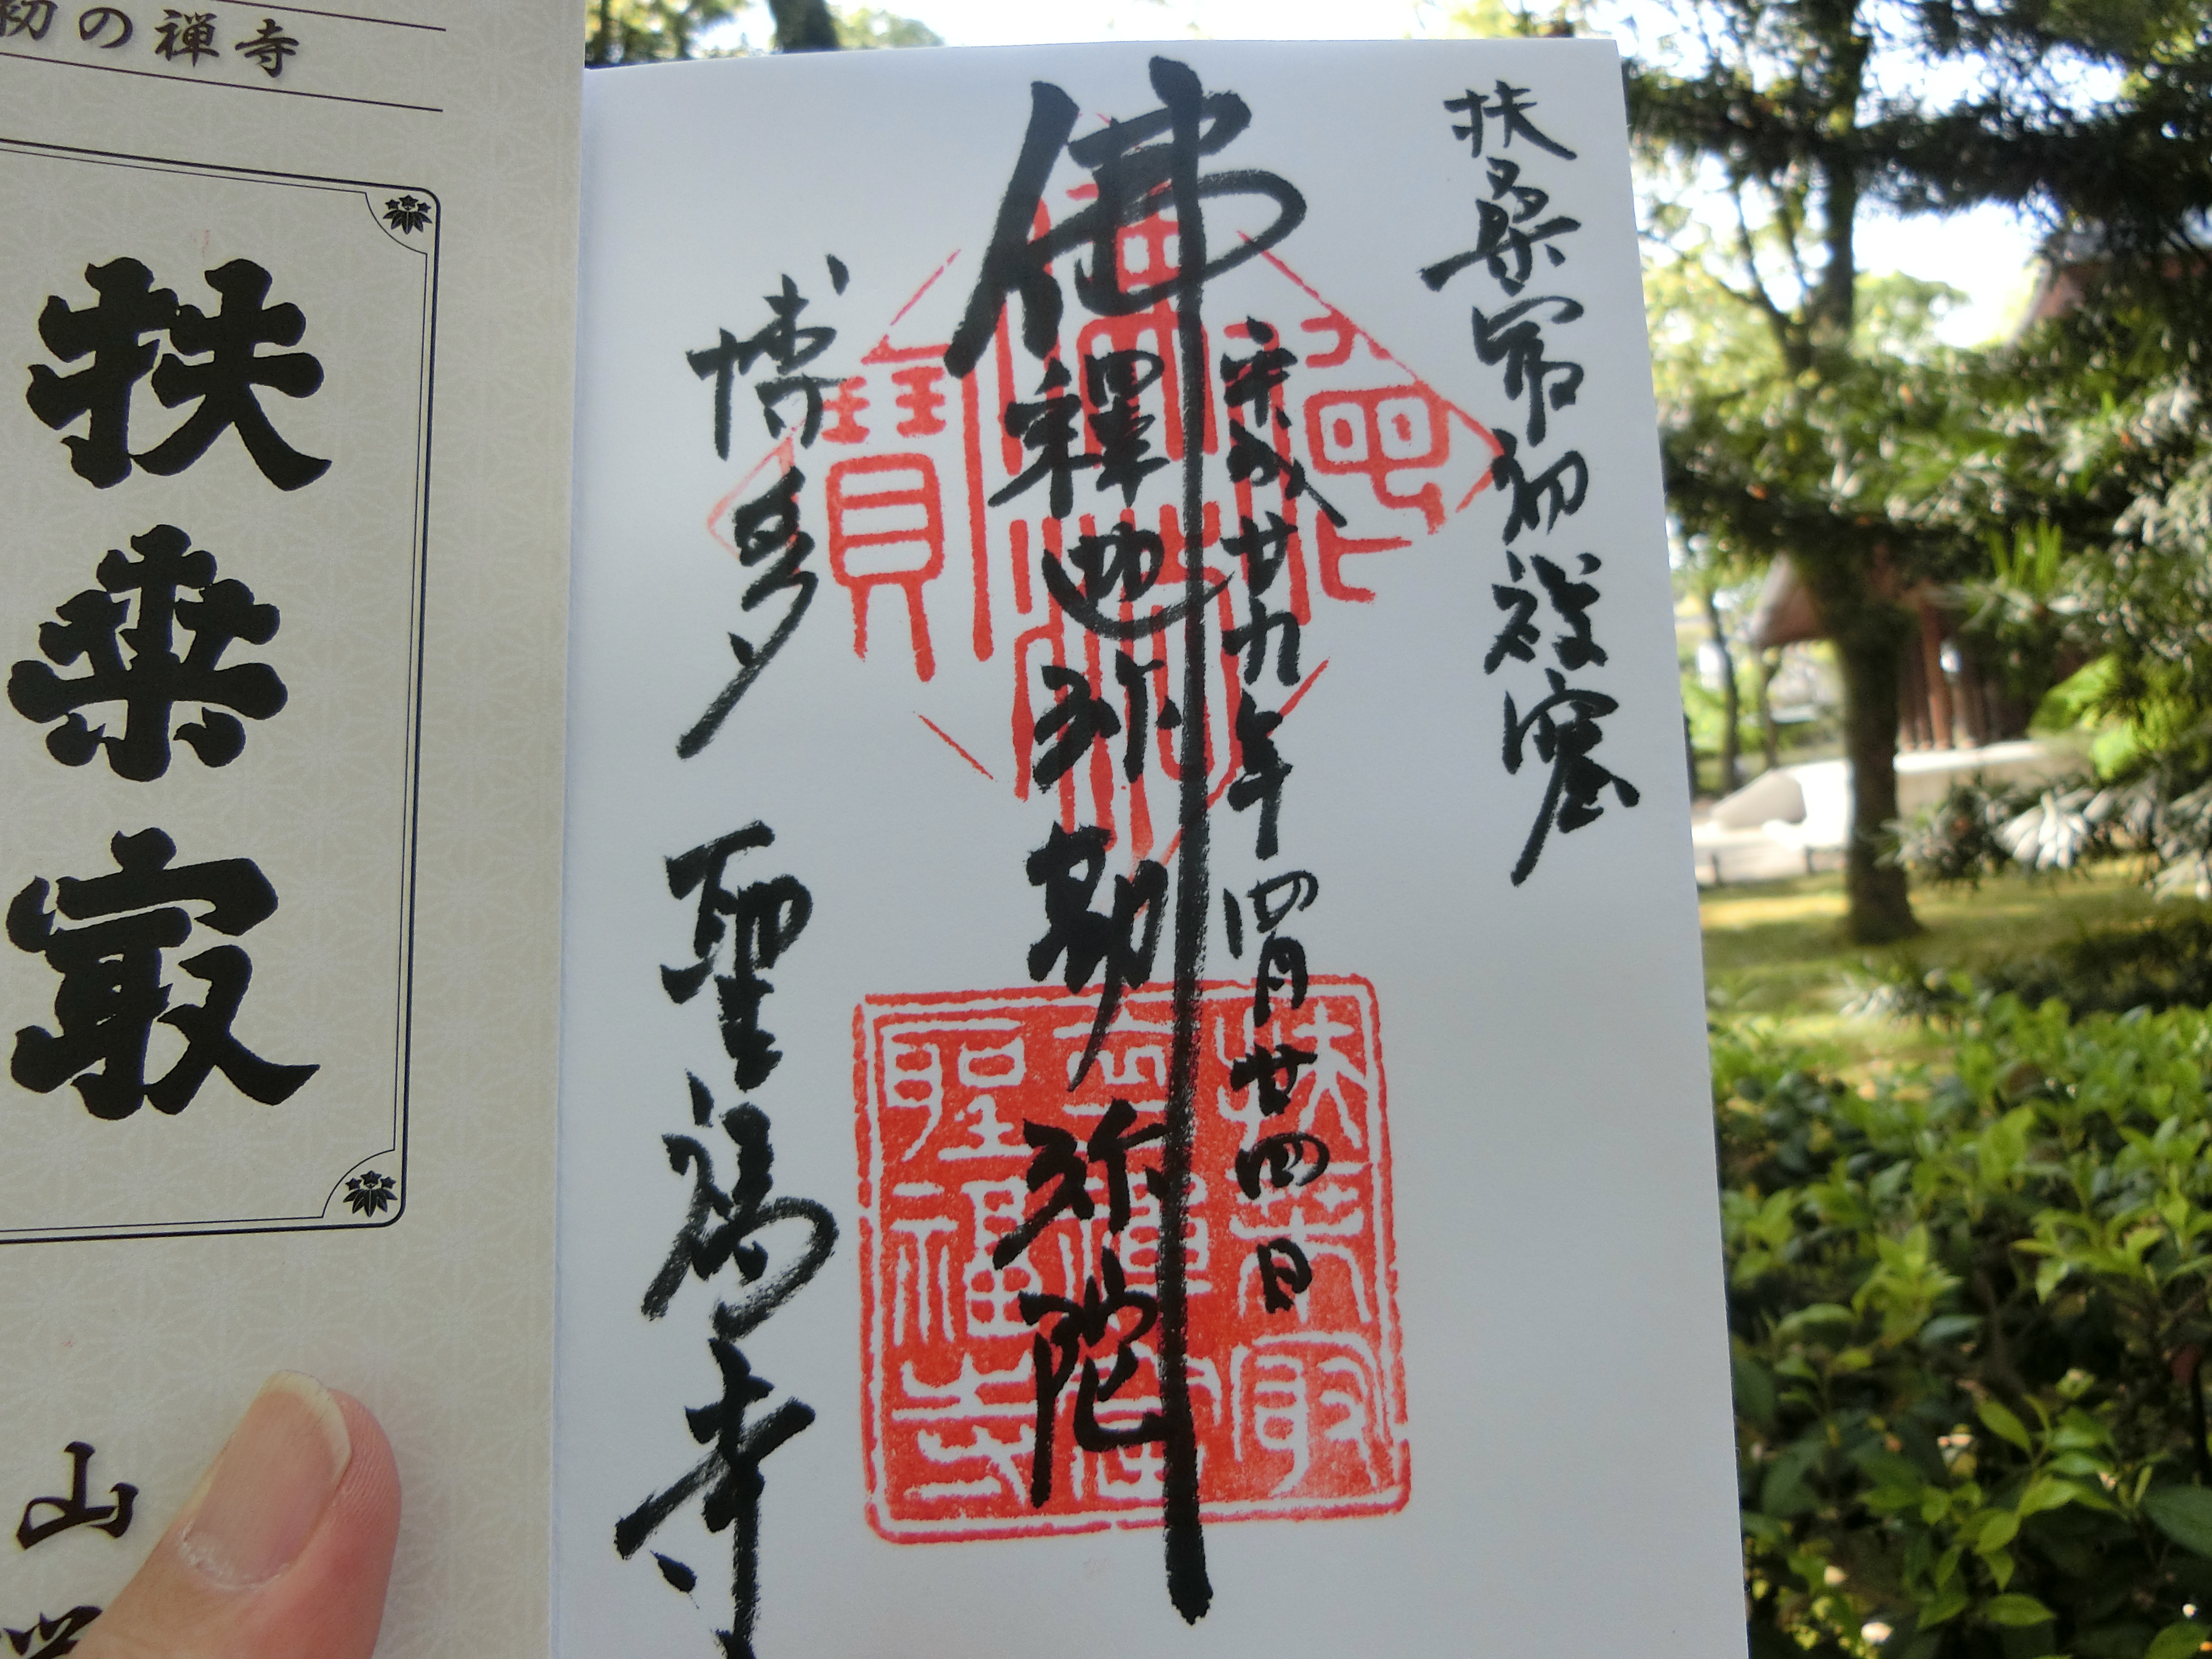 初の禅寺
扶桒㝡
山
扶桑㝡初禅窟
平成廿九年四月廿四日
佛
釋迦弥勒弥陀
博多 聖福寺
扶桒取
初禅窟
聖福寺